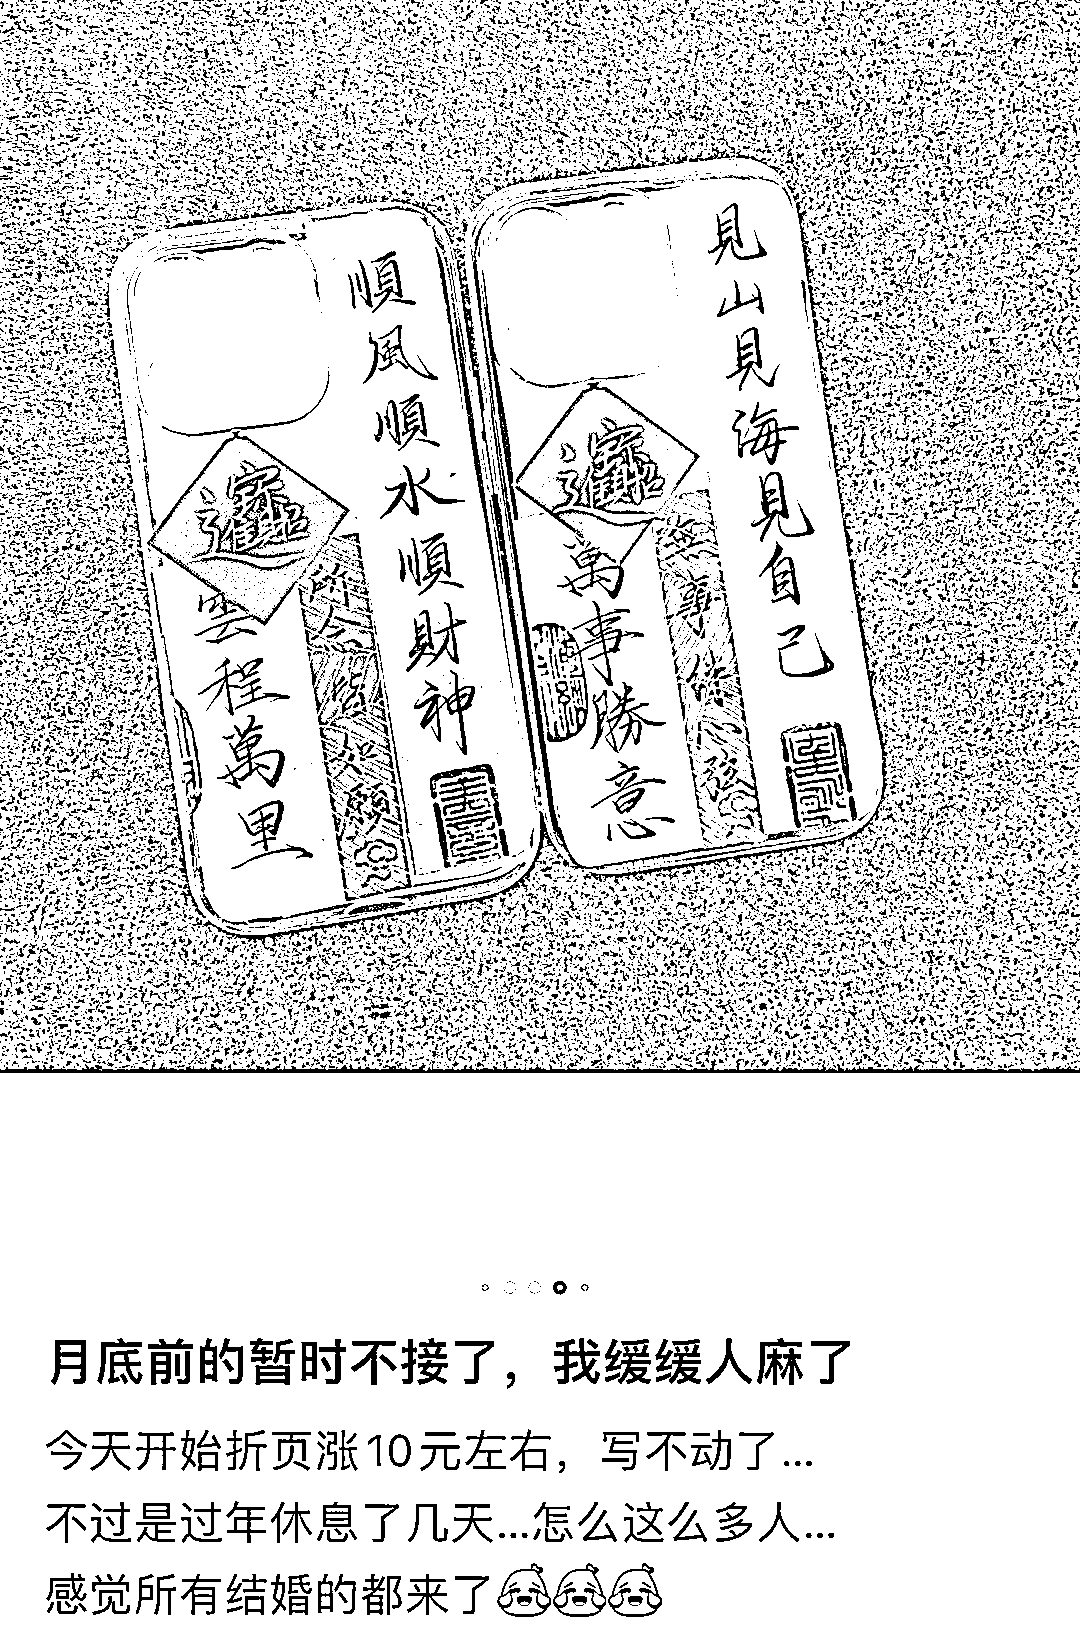 順風順水順財神
所念皆如願
雲程萬里
見山見海見自己
萬事勝意
月底前的暂时不接了，我缓缓人麻了
今天开始折页涨10元左右，写不动了...
不过是过年休息了几天...怎么这么多人...
感觉所有结婚的都来了😂😂😂